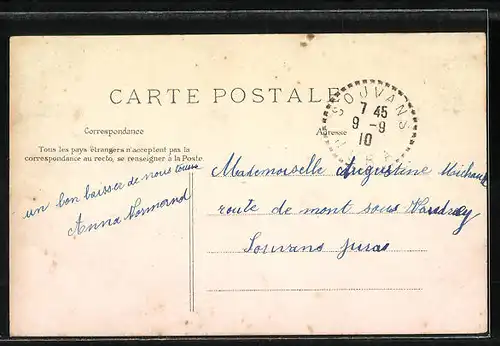 CARTE POSTALE
SOUVANS
7 45
9 - 9
10
Correspondance
Adresse
Tous les pays étrangers n'acceptent pas la
correspondance au recto, se renseigner à la Poste.
un bon baisser de nous tous
Anna Normand
Mademoiselle Augustine Michaud
route de mont sous Vaudrey
Souvans Juras